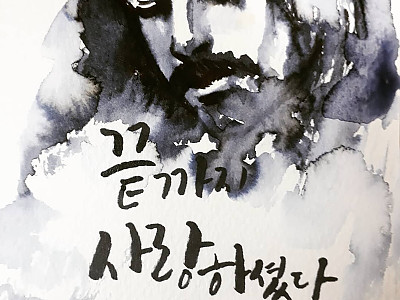 끝까지
사랑하셨다